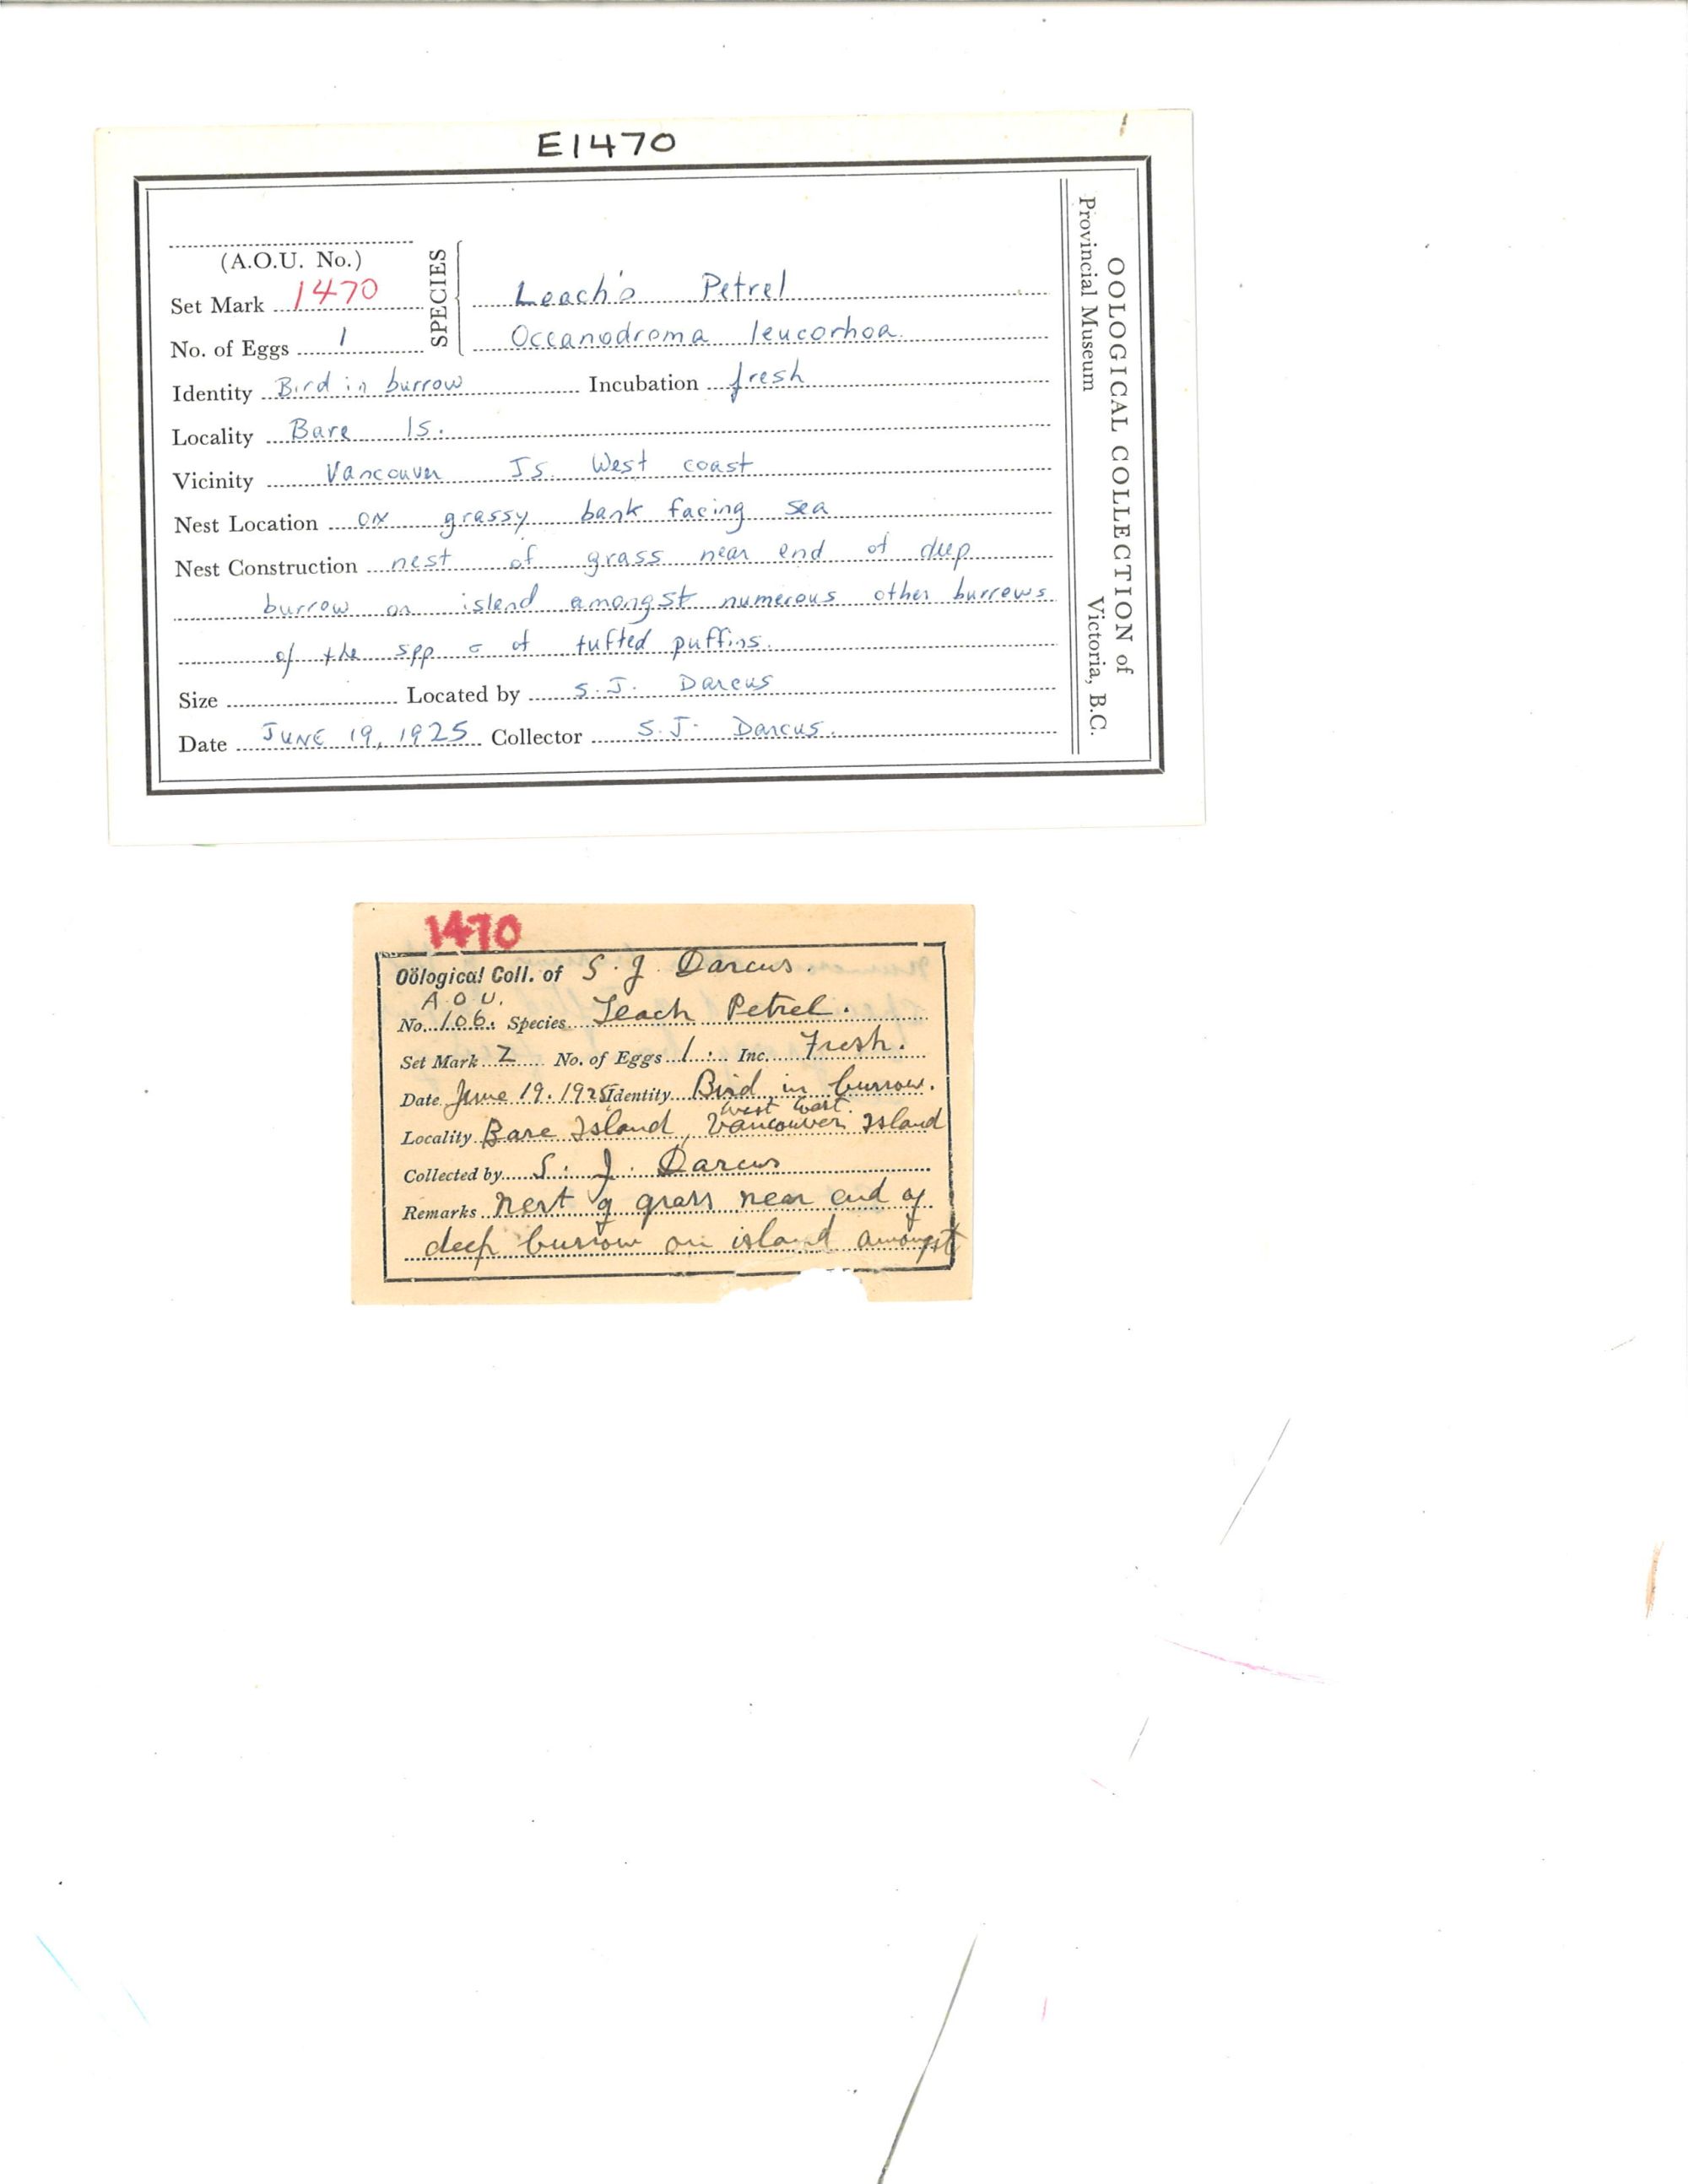 E1470
OOLOGICAL COLLECTION of
Provincial Museum Victoria, B.C.
(A.O.U. No.)
SPECIES
Set Mark 1470 Leach's Petrel
No. of Eggs 1 Oceanodroma leucorhoa.
Identity Bird in burrow Incubation fresh
Locality Bare Is.
Vicinity Vancouver Is. West coast
Nest Location on grassy bank facing sea
Nest Construction nest of grass near end of deep
burrow on island amongst numerous other burrows
of the spp of tufted puffins.
Size Located by S.J. Darcus
Date JUNE 19, 1925 Collector S.J. Darcus.
1470
Oölogical Coll. of S. J. Darcus.
A.O.U.
No. 106. Species Leach Petrel.
Set Mark 2 No. of Eggs 1. Inc. Fresh.
Date June 19. 1925 Identity Bird in burrow.
West Coast.
Locality Bare Island, Vancouver Island
Collected by S. J. Darcus
Remarks Nest of grass near end of
deep burrow on island amongst